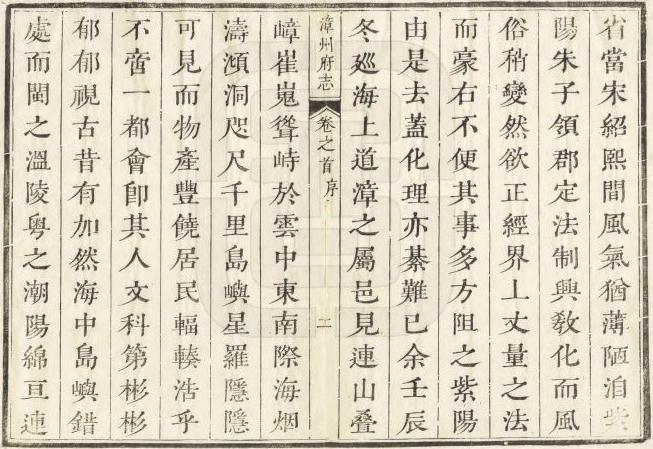 省當宋紹熙間風氣猶薄陋洎紫
陽朱子領郡定法制興教化而風
俗稍變然欲正經界上丈量之法
而豪右不便其事多方阻之紫陽
由是去蓋化理亦綦難已余壬辰
冬廵海上道漳之屬邑見連山叠
漳州府志 卷之首 序 二
嶂崔嵬聳峙於雲中東南際海烟
濤澒洞咫尺千里島嶼星羅隱隱
可見而物產豐饒居民輻輳浩乎
不啻一都會卽其人文科第彬彬
郁郁視古昔有加然海中島嶼錯
處而閩之溫陵粤之潮陽綿亘連